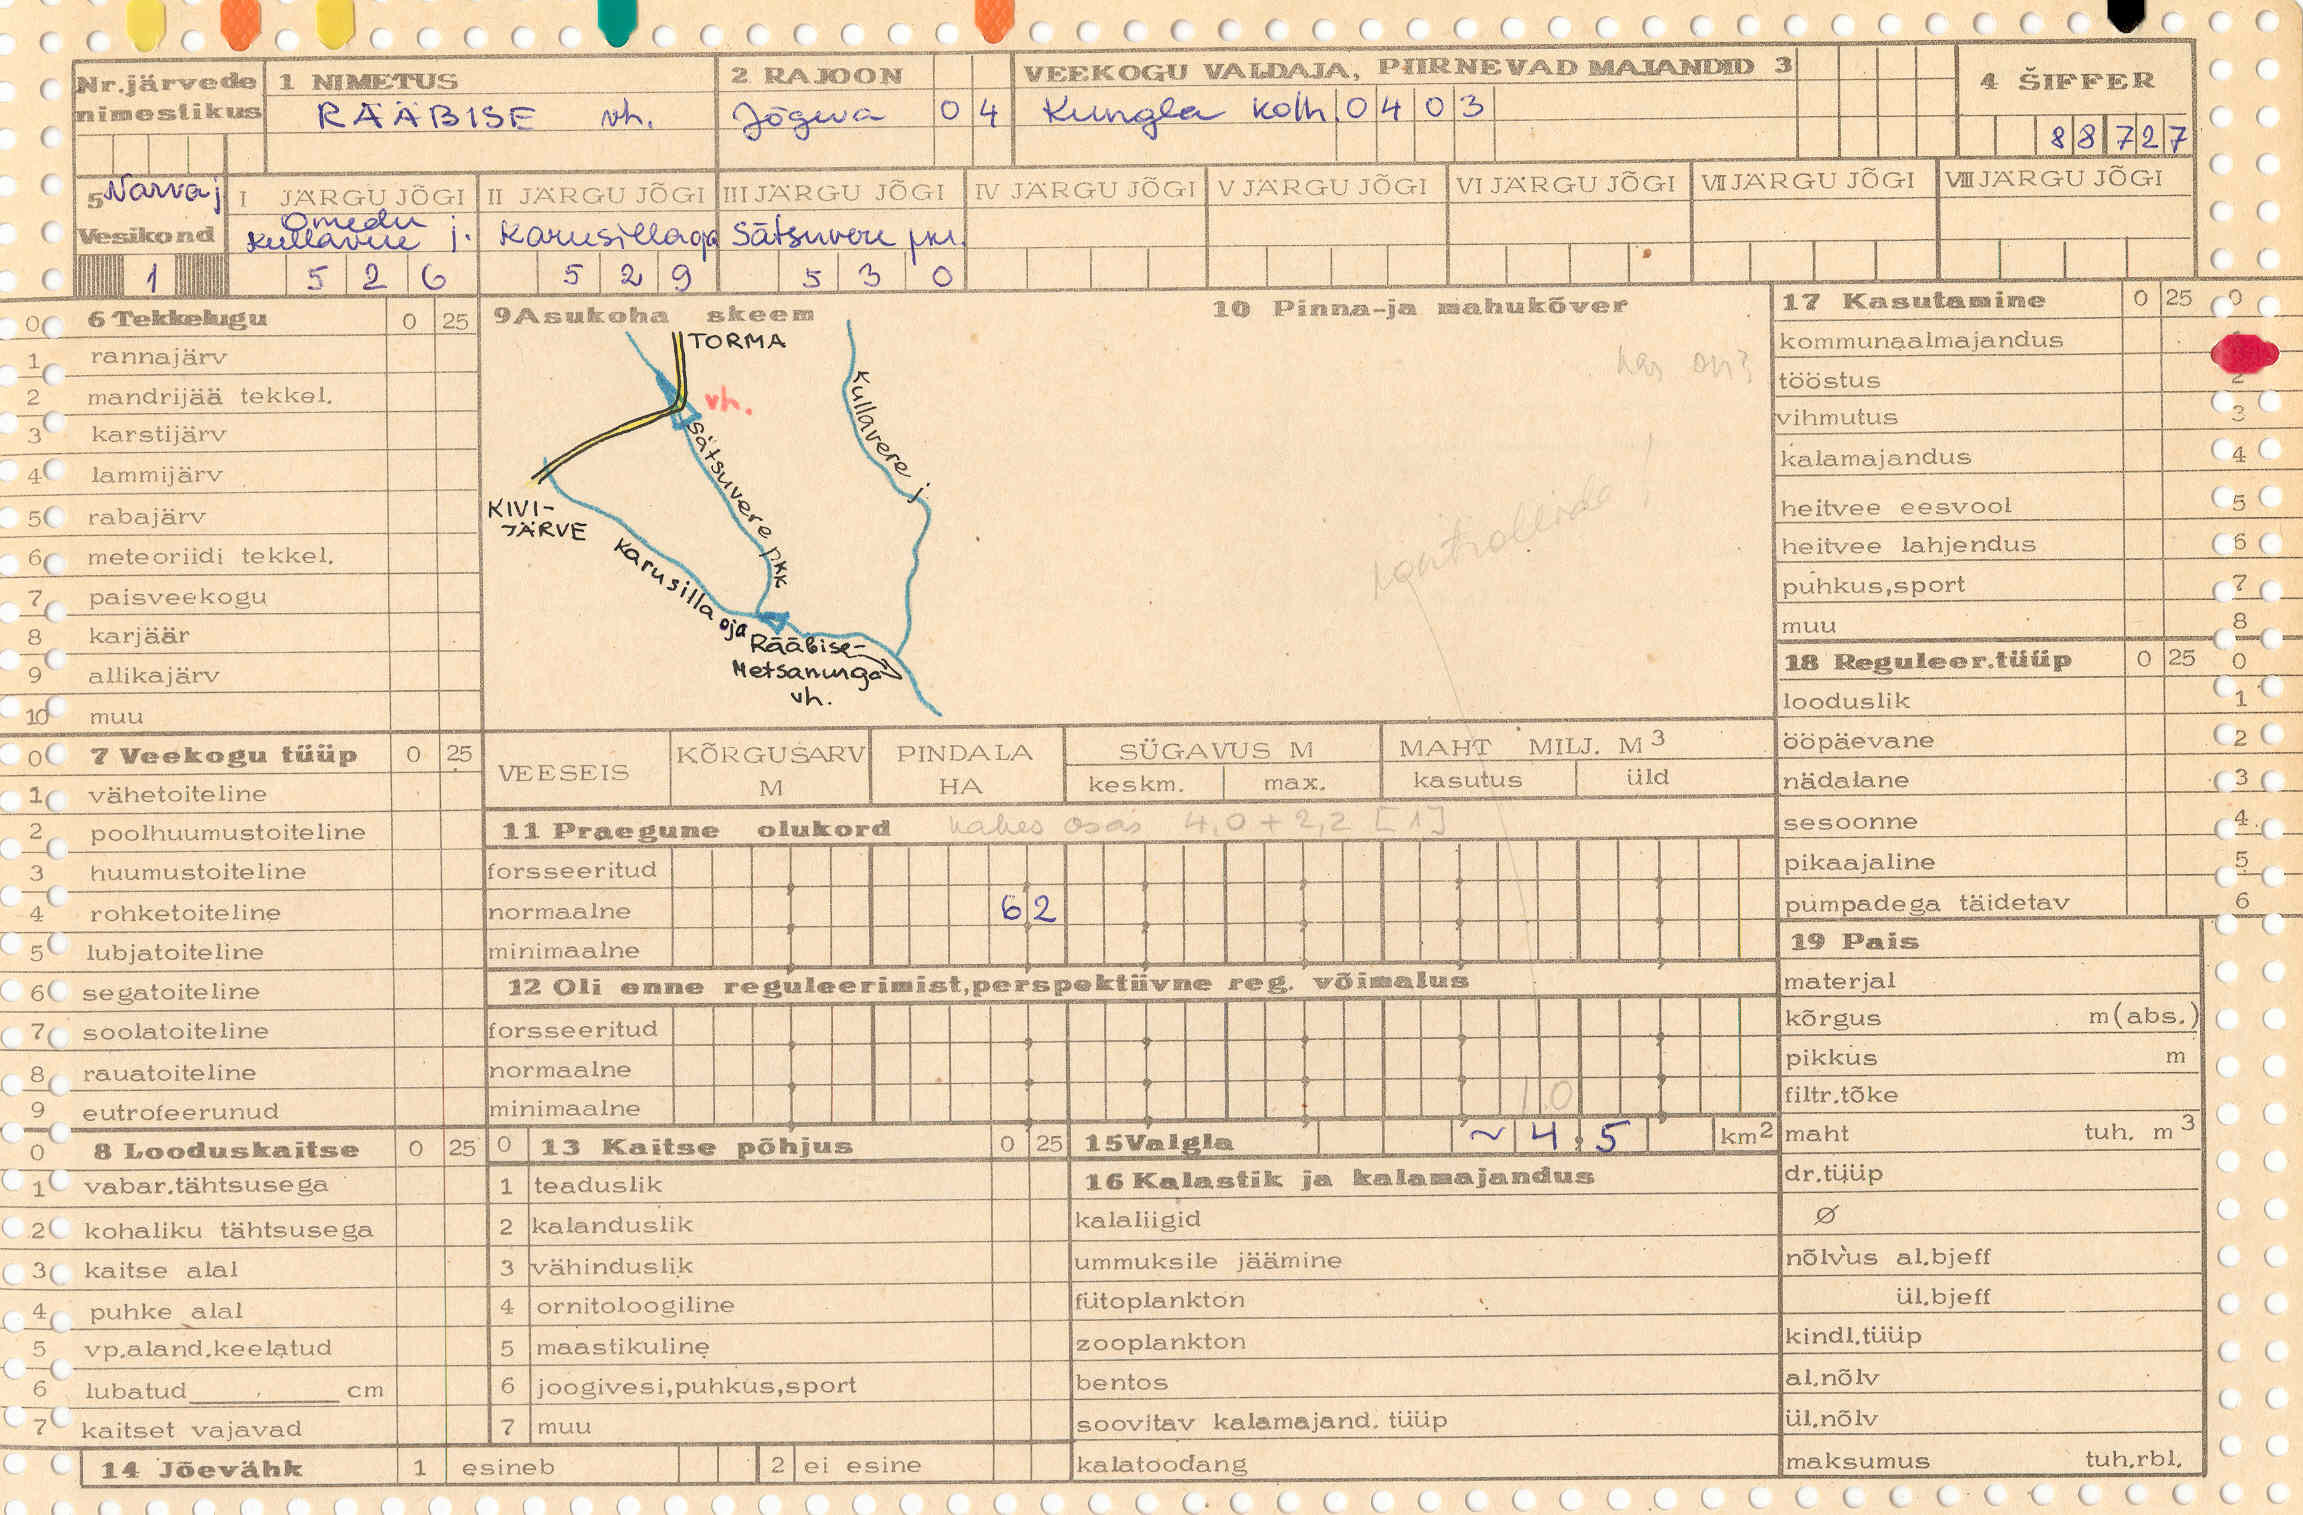 Nr.järvede nimestikus
1 NIMETUS
RÄÄBISE vh.
2 RAJOON
Jõgeva 0 4
VEEKOGU VALDAJA, PIIRNEVAD MAJANDID 3
Kungla kolh. 0 4 0 3
4 ŠIFFER
8 8 7 2 7
5 Narva j
Vesikond
1
I JÄRGU JÕGI
Omedu
Kullavere j.
5 2 6
II JÄRGU JÕGI
Karusillaoja
5 2 9
III JÄRGU JÕGI
Sätsuvere pkr.
5 3 0
IV JÄRGU JÕGI
V JÄRGU JÕGI
VI JÄRGU JÕGI
VII JÄRGU JÕGI
VIII JÄRGU JÕGI
0 6 Tekkelugu 0 25
1 rannajärv
2 mandrijää tekkel.
3 karstijärv
4 lammijärv
5 rabajärv
6 meteoriidi tekkel.
7 paisveekogu
8 karjäär
9 allikajärv
10 muu
0 7 Veekogu tüüp 0 25
1 vähetoiteline
2 poolhuumustoiteline
3 huumustoiteline
4 rohketoiteline
5 lubjatoiteline
6 segatoiteline
7 soolatoiteline
8 rauatoiteline
9 eutrofeerunud
0 8 Looduskaitse 0 25
1 vabar.tähtsusega
2 kohaliku tähtsusega
3 kaitse alal
4 puhke alal
5 vp.aland.keelatud
6 lubatud cm
7 kaitset vajavad
14 Jõevähk 1 esineb 2 ei esine
9 Asukoha skeem
TORMA
vh.
Kullavere j
Sätsuvere pkk
KIVI-
JÄRVE
Karusilla oja
Rääbise-
Metsanurga
vh.
10 Pinna-ja mahukõver
kas on?
kontrollida!
VEESEIS
KÕRGUSARV M
PINDALA HA
SÜGAVUS M
keskm. max.
MAHT MILJ. M3
kasutus üld
11 Praegune olukord kahes osas 4,0 + 2,2 [1]
forsseeritud
normaalne 6 2
minimaalne
12 Oli enne reguleerimist,perspektiivne reg. võimalus
forsseeritud
normaalne
minimaalne
10
0 13 Kaitse põhjus 0 25
1 teaduslik
2 kalanduslik
3 vähinduslik
4 ornitoloogiline
5 maastikuline
6 joogivesi,puhkus,sport
7 muu
15 Valgla ~ 4,5 km2
16 Kalastik ja kalamajandus
kalaliigid
ummuksile jäämine
fütoplankton
zooplankton
bentos
soovitav kalamajand. tüüp
kalatoodang
17 Kasutamine 0 25 0
kommunaalmajandus
tööstus 2
vihmutus 3
kalamajandus 4
heitvee eesvool 5
heitvee lahjendus 6
puhkus,sport 7
muu 8
18 Reguleer.tüüp 0 25 0
looduslik 1
ööpäevane 2
nädalane 3
sesoonne 4
pikaajaline 5
pumpadega täidetav 6
19 Pais
materjal
kõrgus m(abs.)
pikkus m
filtr.tõke
maht tuh. m3
dr.tüüp
Ø
nõlvus al.bjeff
ül.bjeff
kindl.tüüp
al.nõlv
ül.nõlv
maksumus tuh.rbl.